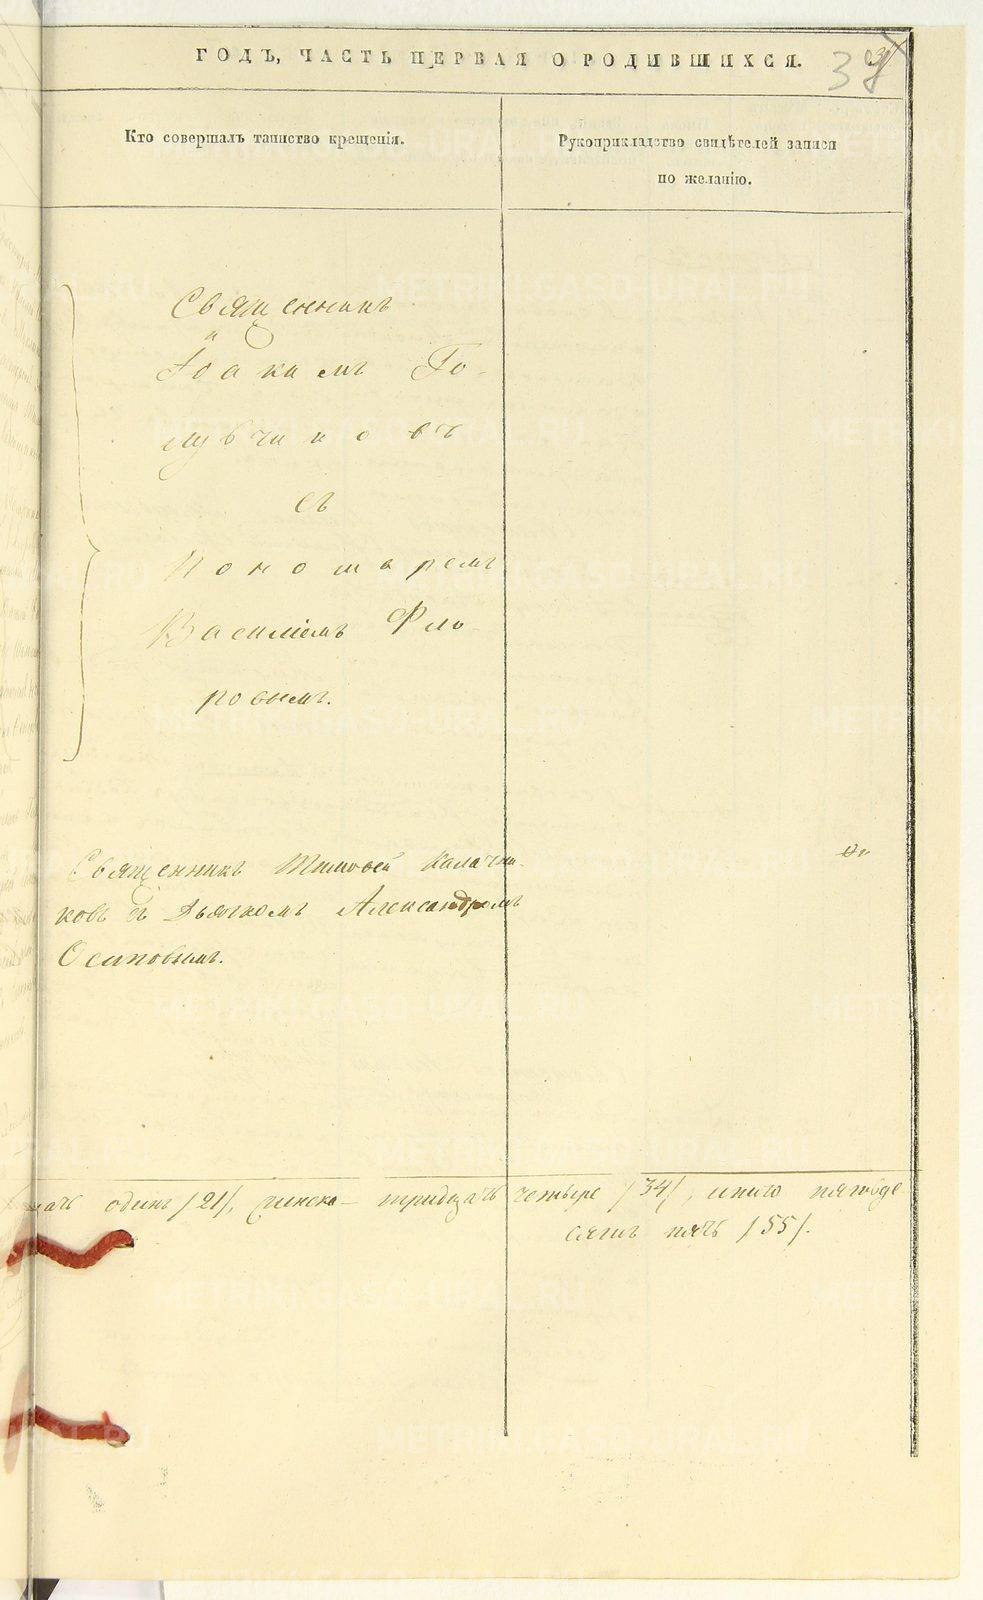 ГОДЪ, ЧАСТЬ ПЕРВАЯ О РОДИВШИХСЯ.
Кто совершалъ таинство крещенія.
Рукоприкладство свидѣтелей записи
по желанію.
Священникъ
Іоакимъ Го-
лубчиковъ
съ
Пономаремъ
Василіемъ Фло-
ровымъ.
Священникъ Тимофей Калачни-
ковъ съ Дьячкомъ Александромъ
Осиповымъ.
одинъ /21/, женска- тридцать четыре /34/, итого пятьде
сятъ пять /55/.
METRIKI.GASO-URAL.RU